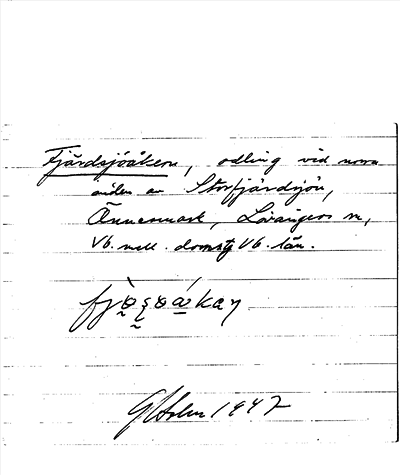 Fjärdsjöåkern, odling vid norra
sidan av Storfjärdsjön,
Ånnonmark, Lövångers sn,
Vb. mell. domstg Vb. län.
GHolm 1947